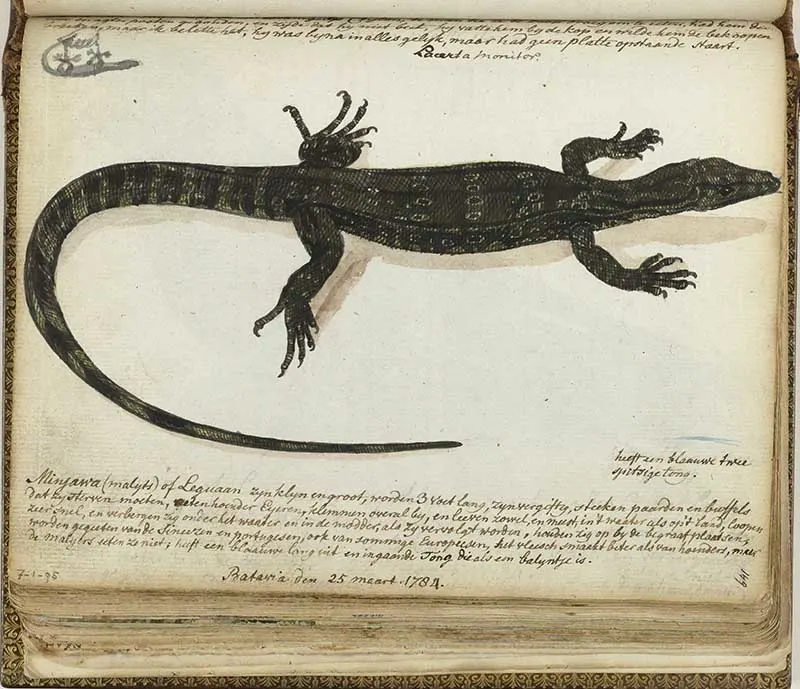 had hem de
maar ik belette het, hy was byna in alles gelyk, maar had geen platte opstaande Staart.
Lacerta monitor.
heeft een blaauwe twee
spitsige tong.
Minjawa (malyts) of Leguaan zyn klyn en groot, worden 3 voet lang, zyn vergiftig, steeken paarden en buffels
dat zy sterven moeten, eten hoender Eyeren, klimmen overal by, en leeven zowel, en meest, in't water als op't land, loopen
zeer snel, en verbergen zig onder het water en in de modder, als zy vervolgt worden, houden zig op by de begraafplaatsen,
worden gegeten van de Sineezen en portugeesen, ook van sommige Europeesen, het vleesch smaakt beter als van hoenders, maar
de malyers eeten ze niet; heeft een blaauwe lang uit en ingaande Tong die als een balyntje is.
Batavia den 25 maart 1784.
7-1-95
149